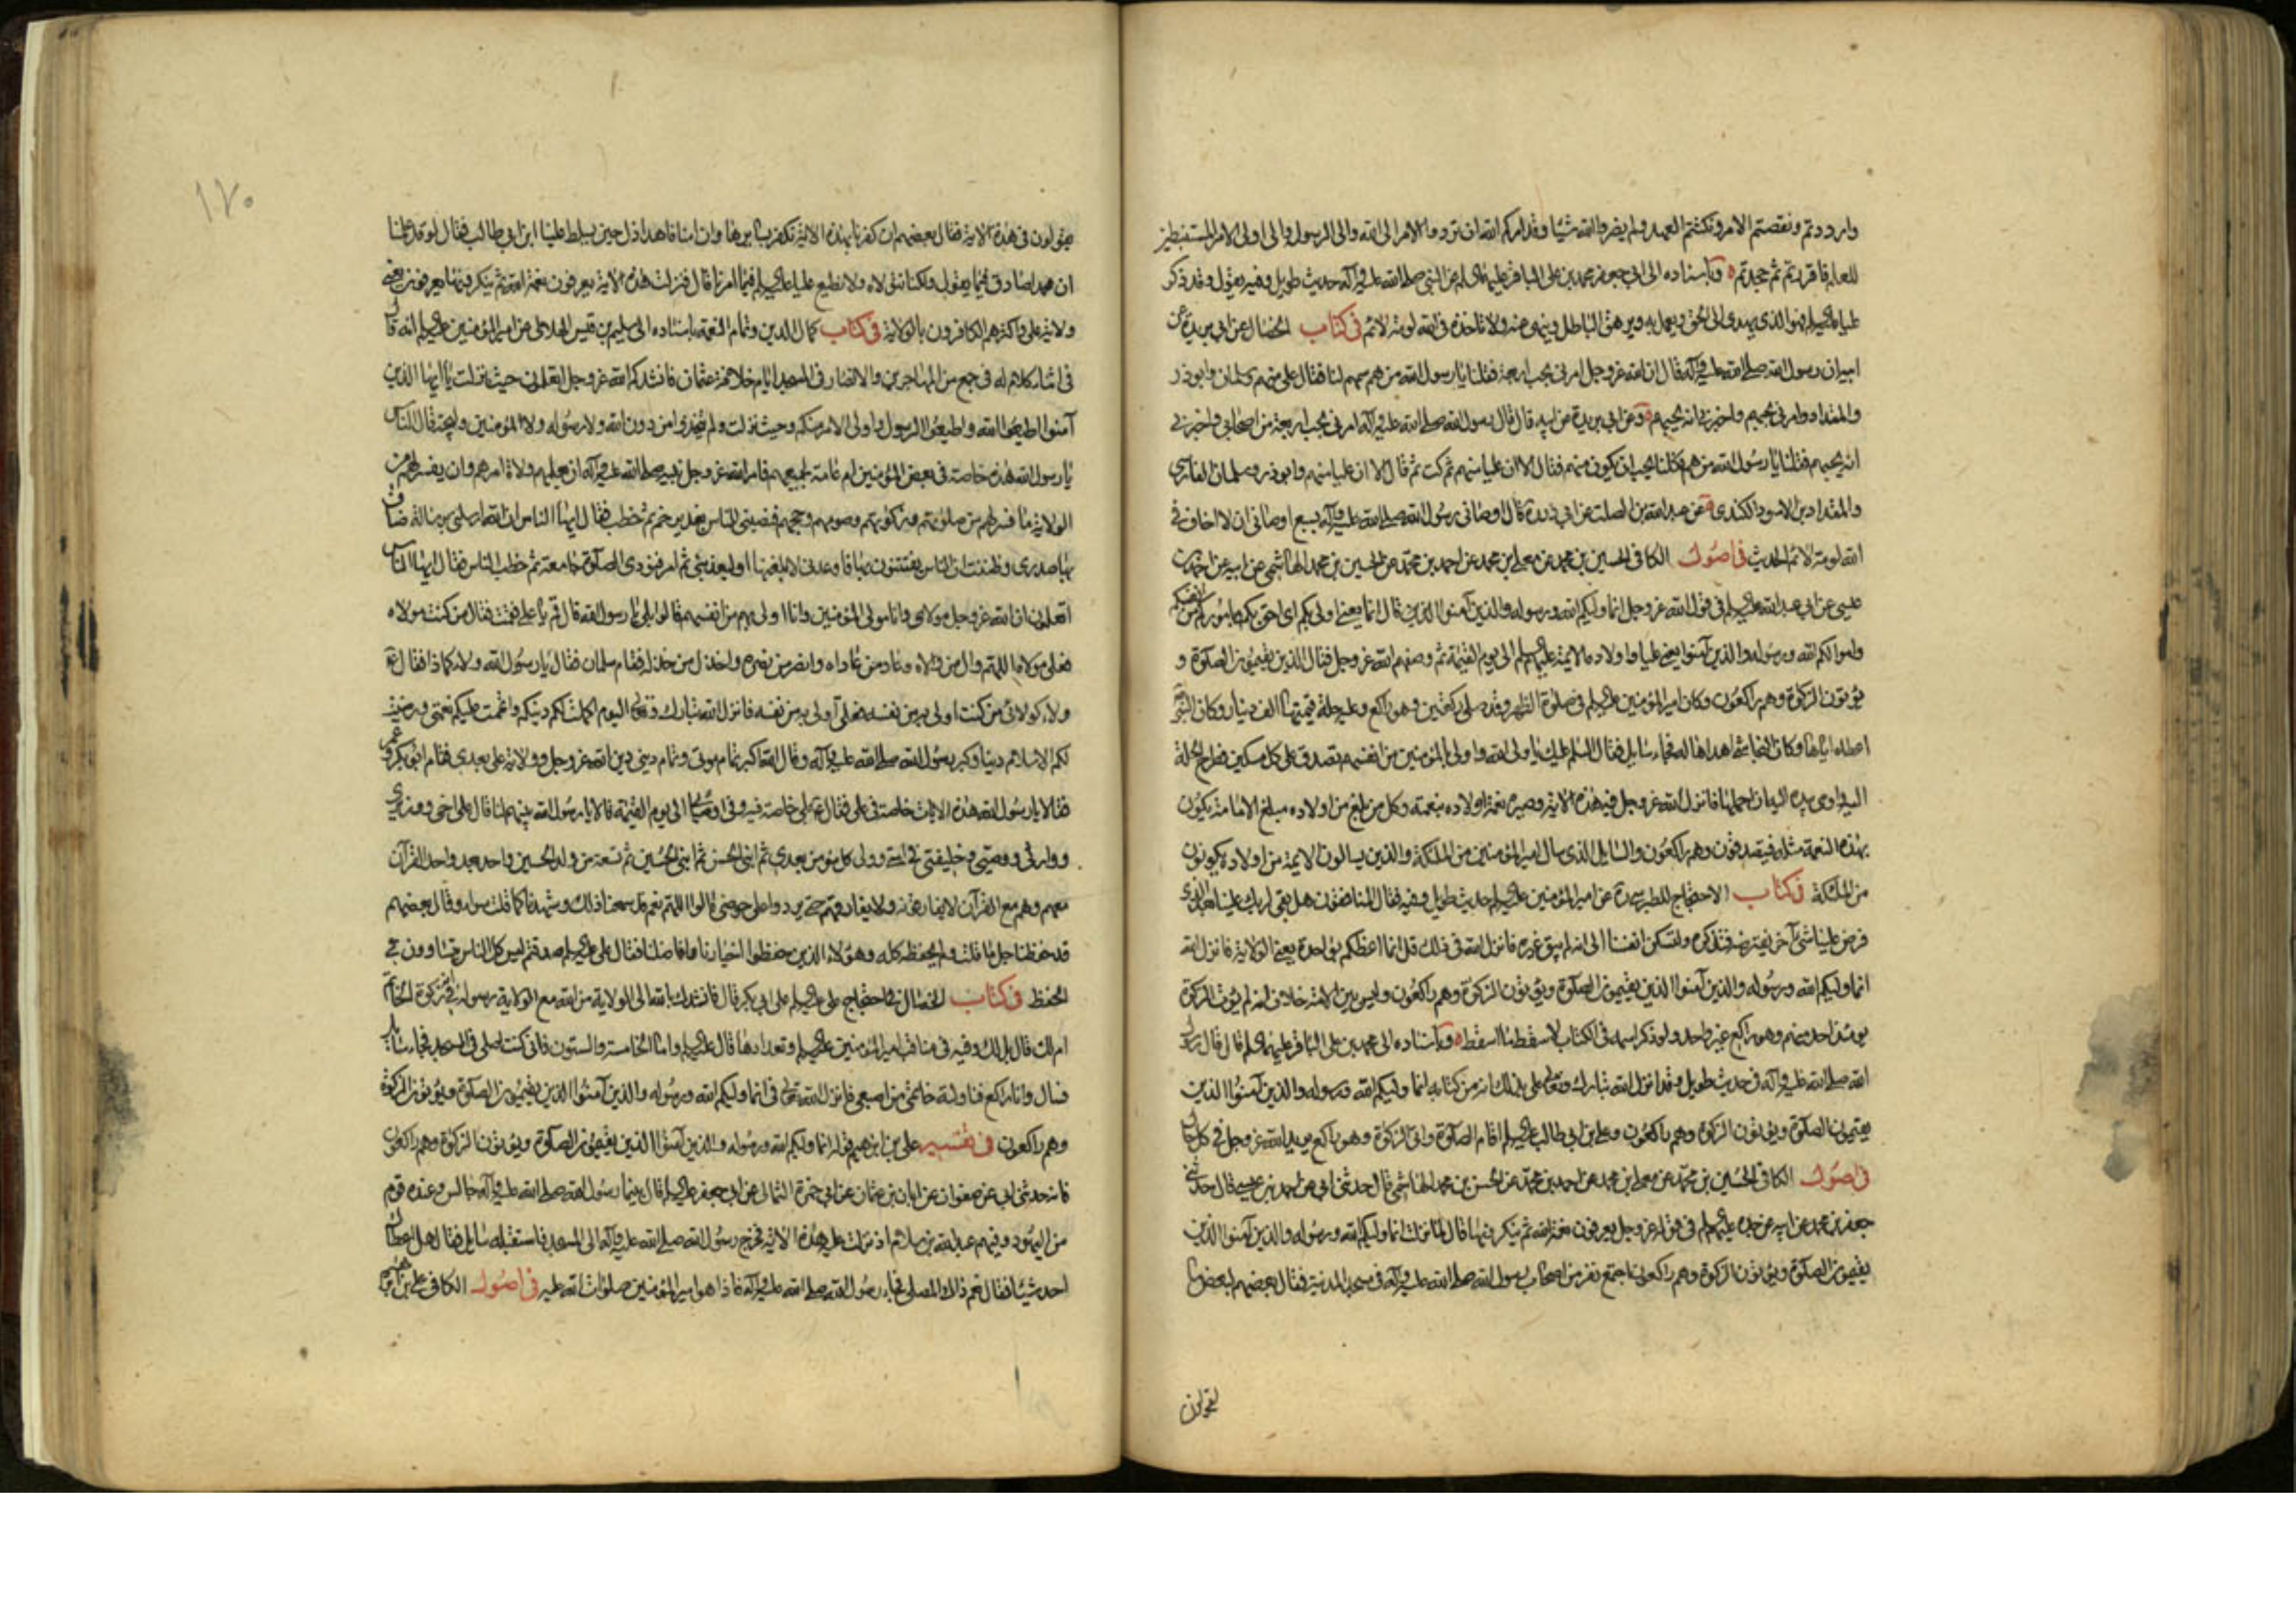 وارددتم ونقصتم الامر ونكثتم العهد ولم يضروا الله شيئا وقد امركم الله ان تردوا الامر الى الله والى الرسول والى اولى الامر المستنبطين
للعلم فاقررتم ثم جحدتم وباسناده الى ابى جعفر محمد بن على الباقر عليهما السلم عن النبى صلى الله عليه وآله حديث طويل وفيه يقول وقد ذكر
عليا عليه السلم فهو الذى يهدى الى الحق ويعمل به ويزهق الباطل وينهى عنه ولا تاخذه فى الله لومة لائم فى كتاب الخصال عن ابى بريدة عن
ابيه ان رسول الله صلى الله عليه وآله قال ان الله عز وجل امرنى بحب اربعة فقلنا يا رسول الله من هم سمهم لنا فقال على منهم وسلمان وابوذر
والمقداد وامرنى بحبهم واخبرنى انه يحبهم وعن ابى بريدة عن ابيه قال قال رسول الله صلى الله عليه وآله امرنى بحب اربعة من اصحابى واخبرنى
انه يحبهم فقلنا يا رسول الله من هم فكلنا يحب ان يكون منهم فقال الا ان عليا منهم ثم سكت ثم قال الا ان عليا منهم وابوذر وسلمان الفارسى
والمقداد بن الاسود الكندى عن عبد الله بن الصلت عن ابى ذر قال اوصانى رسول الله صلى الله عليه وآله بسبع اوصانى ان لا اخاف فى
الله لومة لائم الحديث فى اصول الكافى الحسين بن محمد عن معلى بن محمد عن احمد بن محمد عن الحسين بن محمد الهاشمى عن ابيه عن احمد بن
عيسى عن ابى عبد الله عليه السلم فى قول الله عز وجل انما وليكم الله ورسوله والذين آمنوا الذين قال انما يعنى اولى بكم اى احق بكم وباموركم من انفسكم
واموالكم الله ورسوله والذين آمنوا يعنى عليا واولاده الائمة عليهم السلم الى يوم القيمة ثم وصفهم الله عز وجل فقال الذين يقيمون الصلوة و
يؤتون الزكوة وهم راكعون وكان امير المؤمنين عليه السلم فى صلوة الظهر وقد صلى ركعتين وهو راكع وعليه حلة قيمتها الف دينار وكان النبى
اعطاه اياها وكان النجاشى اهداها له فجاء سايل فقال السلم عليك يا ولى الله واولى بالمؤمنين من انفسهم تصدق على كل مسكين فطرح الحلة
اليه واومى بيده اليه ان احملها فانزل الله عز وجل فيه هذه الآية وصير نعمة اولاده بنعمته وكل من بلغ من اولاده مبلغ الامامة يكون
بهذه النعمة مثله فيتصدقون وهم راكعون والسايل الذى سال امير المؤمنين من الملئكة والذين يسالون الائمة من اولاده يكونون
من الملئكة فى كتاب الاحتجاج للطبرسى عن امير المؤمنين عليه السلم حديث طويل وفيه فقال المنافقون هل بقى لربك علينا بعد الذى
فرض علينا شئ آخر يفترضه فتذكره ولتسكن انفسنا الى انه لم يبق غيره فانزل الله فى ذلك قل انما اعظكم بواحدة يعنى الولاية فانزل الله
انما وليكم الله ورسوله والذين آمنوا الذين يقيمون الصلوة ويؤتون الزكوة وهم راكعون وليس بين الامة خلاف انه لم يؤت الزكوة
يومئذ احد منهم وهو راكع غير واحد ولو ذكر اسمه فى الكتاب لاسقط ما اسقط وباسناده الى محمد بن على الباقر عليهما السلم قال قال رسول
الله صلى الله عليه وآله فى حديث طويل وقد انزل الله تبارك وتعالى على بذلك آية من كتابه انما وليكم الله ورسوله والذين آمنوا الذين
يقيمون الصلوة ويؤتون الزكوة وهم راكعون وعلى بن ابى طالب عليه السلم اقام الصلوة واتى الزكوة وهو راكع يريد الله عز وجل فى كل حال
فى اصول الكافى الحسين بن محمد عن معلى بن محمد عن احمد بن محمد عن الحسن بن محمد الهاشمى قال حدثنى ابى عن احمد بن عيسى قال حدثنى
جعفر بن محمد عن ابيه عن جده عليهم السلم فى قوله عز وجل يعرفون نعمة الله ثم ينكرونها قال لما نزلت انما وليكم الله ورسوله والذين آمنوا الذين
يقيمون الصلوة ويؤتون الزكوة وهم راكعون اجتمع نفر من اصحاب رسول الله صلى الله عليه وآله فى مسجد المدينة فقال بعضهم لبعض ما
يقولون
١٧٠
يقولون فى هذه الآية فقال بعضهم ان كفرنا بهذه الآية نكفر بسايرها وان امنا فان هذا ذل حين يسلط علينا ابن ابى طالب فقال لو قد علمنا
ان محمدا صادق فيما يقول ولكنا نتولاه ولا نطيع عليا عليه السلم فيما امرنا قال فنزلت هذه الآية يعرفون نعمة الله ثم ينكرونها يعرفون يعنى
ولاية على واكثرهم الكافرون بالولاية فى كتاب كمال الدين وتمام النعمة باسناده الى سليم بن قيس الهلالى عن امير المؤمنين عليه السلم انه قال
فى اثناء كلام له فى جمع من المهاجرين والانصار فى المسجد ايام خلافة عثمان فانشدكم الله عز وجل اتعلمون حيث نزلت يا ايها الذين
آمنوا اطيعوا الله واطيعوا الرسول واولى الامر منكم وحيث نزلت ولم يتخذوا من دون الله ولا رسوله ولا المؤمنين وليجة قال الناس
يا رسول الله هذه خاصة فى بعض المؤمنين ام عامة لجميعهم فامر الله عز وجل نبيه صلى الله عليه وآله ان يعلمهم ولاة امرهم وان يفسر لهم من
الولاية ما فسر لهم من صلوتهم وزكوتهم وصومهم وحجهم فنصبنى للناس بغدير خم ثم خطب فقال ايها الناس ان الله ارسلنى برسالة ضاق
بها صدرى وظننت ان الناس يفتتنون بها فاوعدنى لابلغها او ليعذبنى ثم امر فنودى الصلوة جامعة ثم خطب الناس فقال ايها الناس
اتعلمون ان الله عز وجل مولاى وانا مولى المؤمنين وانا اولى بهم من انفسهم قالوا بلى يا رسول الله قال قم يا على فقمت فقال من كنت مولاه
فعلى مولاه اللهم وال من والاه وعاد من عاداه وانصر من نصره واخذل من خذله فقام سلمان فقال يا رسول الله ولاء كماذا فقال
ولاء كولائى من كنت اولى به من نفسه فعلى اولى به من نفسه فانزل الله تبارك وتعالى اليوم اكملت لكم دينكم واتممت عليكم نعمتى ورضيت
لكم الاسلام دينا وكبر رسول الله صلى الله عليه وآله وقال الله اكبر تمام نبوتى وتمام دينى دين الله عز وجل وولاية على بعدى فقام ابو بكر وعمر
فقالا يا رسول الله هذه الايات خاصة فى على فقال بلى خاصة فيه وفى اوصيائى الى يوم القيمة قالا يا رسول الله بينهم لنا قال على اخى ووزيرى
ووارثى ووصيى وخليفتى فى امتى وولى كل مؤمن بعدى ثم ابنى الحسن ثم ابنى الحسين ثم تسعة من ولد الحسين واحد بعد واحد القرآن
معهم وهم مع القرآن لا يفارقونه ولا يفارقهم حتى يردوا على حوضى قالوا اللهم نعم قد سمعنا ذلك وشهدنا كما قلت سواء وقال بعضهم
قد حفظنا جل ما قلت ولم نحفظه كله وهؤلاء الذين حفظوا اخيارنا وافاضلنا فقال على عليه السلم صدقتم ليس كل الناس يتساوون فى
الحفظ فى كتاب الخصال فى احتجاج على عليه السلم على ابى بكر قال فانشدك بالله الى الولاية من الله مع الولاية رسوله فى زكوة الخاتم
ام لك قال بل لك وفيه فى مناقب امير المؤمنين عليه السلم وتعدادها قال عليه السلم واما الخامسة والستون فانى كنت اصلى فى المسجد فجاء سايل
فسال وانا راكع فناولته خاتمى من اصبعى فانزل الله تعالى فى انما وليكم الله ورسوله والذين آمنوا الذين يقيمون الصلوة ويؤتون الزكوة
وهم راكعون فى تفسير على بن ابراهيم قوله انما وليكم الله ورسوله والذين آمنوا الذين يقيمون الصلوة ويؤتون الزكوة وهم راكعون
فانه حدثنى ابى عن صفوان عن ابان بن عثمان عن ابى حمزة الثمالى عن ابى جعفر عليه السلم قال بينما رسول الله صلى الله عليه وآله جالس وعنده قوم
من اليهود وفيهم عبد الله بن سلام اذ نزلت عليه هذه الآية فخرج رسول الله صلى الله عليه وآله الى المسجد فاستقبله سايل فقال هل اعطاك
احد شيئا فقال نعم ذاك المصلى فجاء رسول الله صلى الله عليه وآله فاذا هو امير المؤمنين صلوات الله عليه فى اصول الكافى على بن ابراهيم